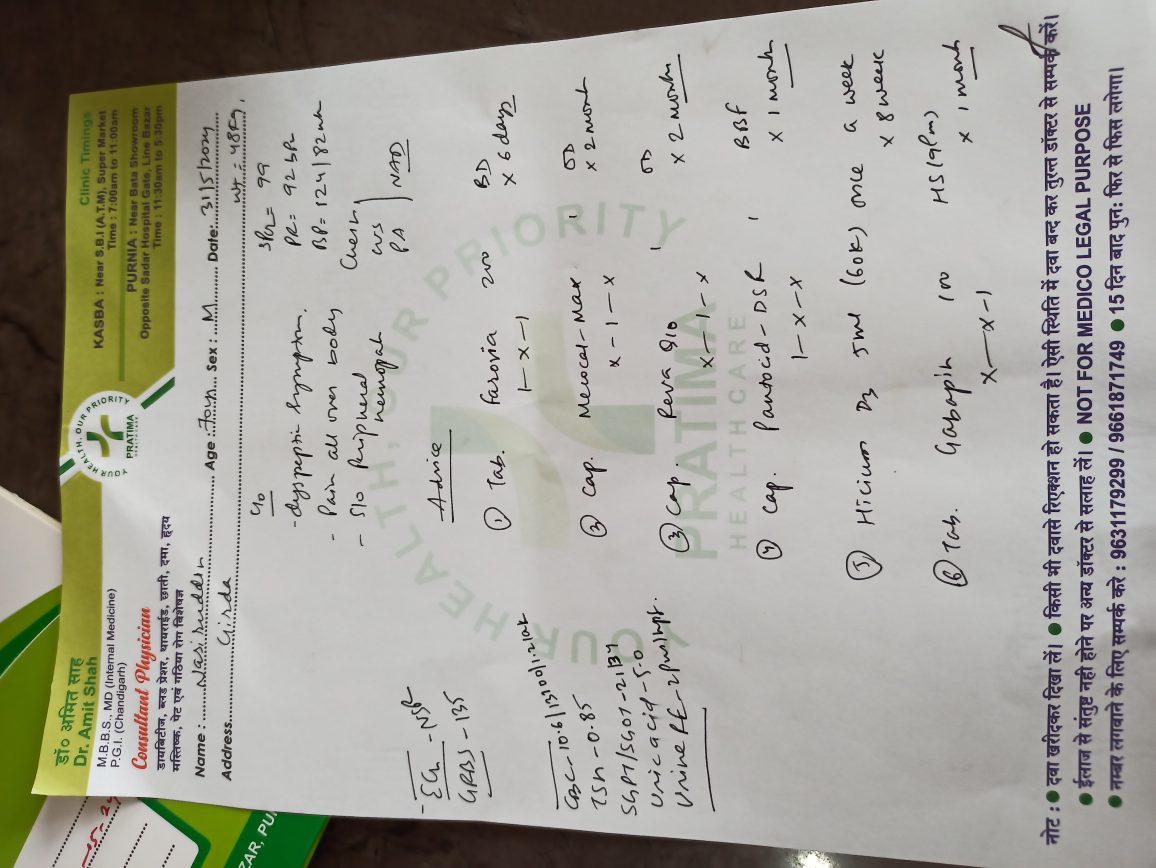 डॉ० अमित साह
Dr. Amit Shah
M.B.B.S., MD (Internal Medicine)
P.G.I. (Chandigarh)
Consultant Physician
डायबिटीज, ब्लड प्रेशर, थायराईड, छाती, दमा, हृदय
मस्तिष्क, पेट एवं गठिया रोग विशेषज्ञ
YOUR HEALTH, OUR PRIORITY
PRATIMA
Clinic Timings
KASBA : Near S.B.I (A.T.M), Super Market
Time : 7:00am to 11:00am
PURNIA : Near Bata Showroom
Opposite Sadar Hospital Gate, Line Bazar
Time : 11:30am to 5:30pm
Name : Nasiruddin Age : 70yr Sex : M Date: 31/5/2024
Address Girda Wt = 48kg
C/o
- dyspeptic symptom.
- Pain all over body
- S/o Peripheral
neuropath
SPO2 = 99
PR = 92 bpm
BP = 124/82 mh
Chest
CVS
PA
NAD
- ECG - NSR
GRBS - 135
CBC - 10.6/15100/1.21
TSH - 0.85
SGPT/SGOT - 21/37
Uric acid - 5.0
Urine RE -
Advice
① Tab. Farovia 200 BD
1-x-1 x 6 days
② Cap. Mecocet-Max 1 OD
x-1-x x 2 month
③ Cap. Reva 9/10 1 OD
x-1-x x 2 month
④ Cap. Pantocid-DSR 1 BBF
1-x-x x 1 month
⑤ Hicium D3 5ml (60K) once a week
x 8 week
⑥ Tab. Gabapin 100 HS (9pm)
x-x-1 x 1 month
YOUR HEALTH, OUR PRIORITY
PRATIMA
HEALTHCARE
नोट : ● दवा खरीदकर दिखा लें। ● किसी भी दवासे रिएक्शन हो सकता है। ऐसी स्थिति में दवा बन्द कर तुरन्त डॉक्टर से सम्पर्क करें।
● ईलाज से संतुष्ट नही होने पर अन्य डॉक्टर से सलाह लें। ● NOT FOR MEDICO LEGAL PURPOSE
● नम्बर लगवाने के लिए सम्पर्क करे : 9631179299 / 9661871749 ● 15 दिन बाद पुनः फिर से फिस लगेगा।